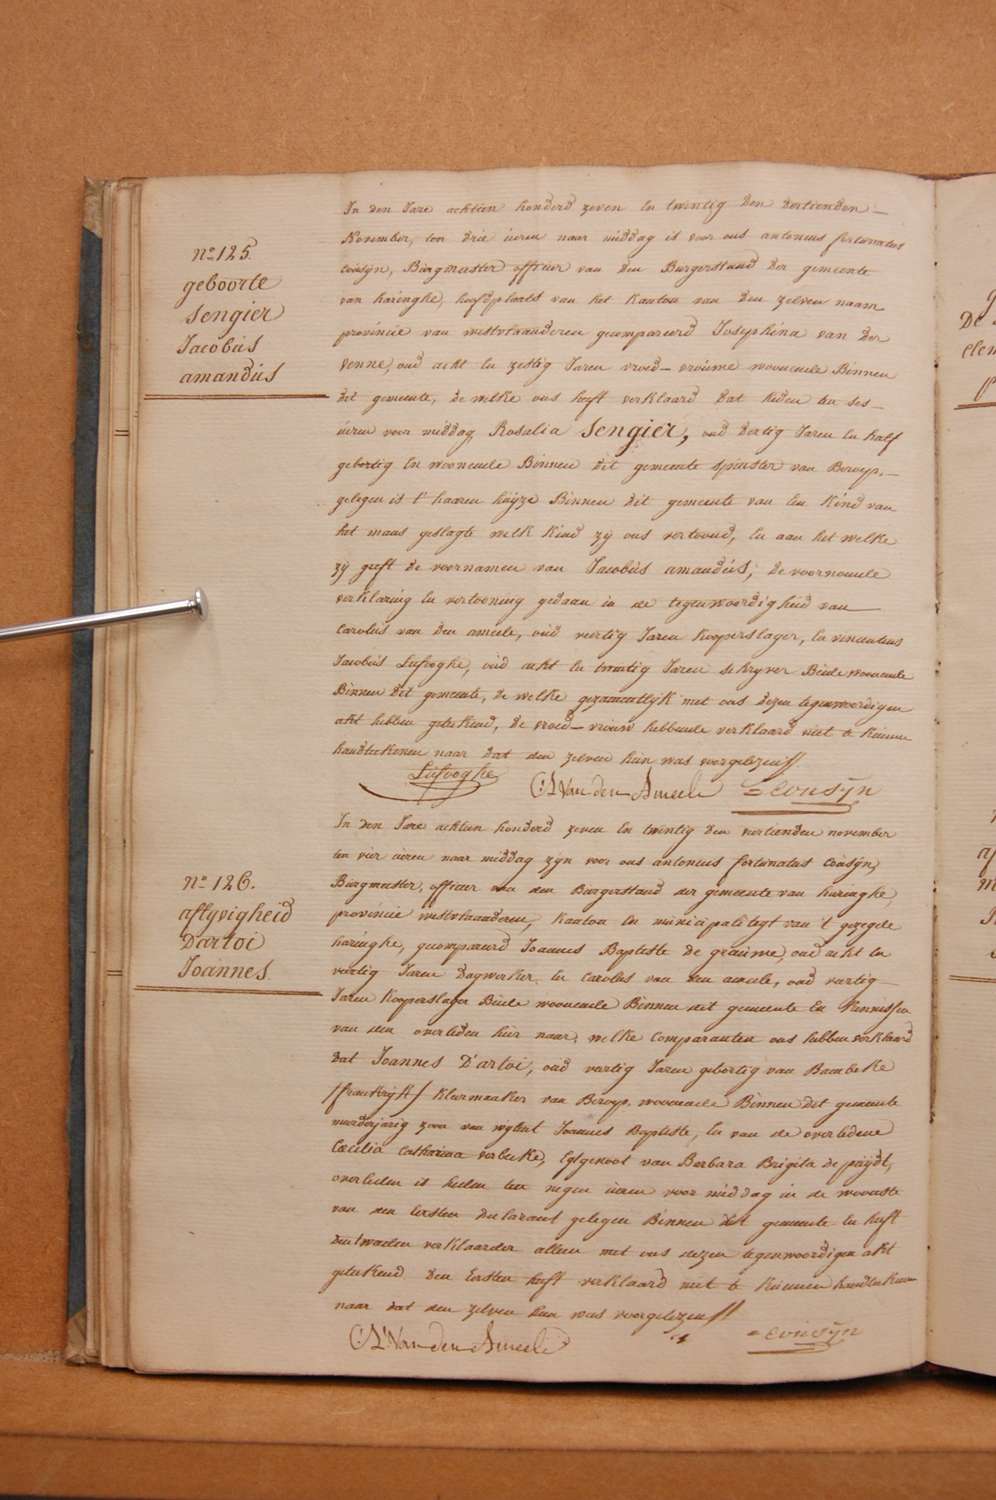 n° 125.
geboorte
Sengier
Jacobús
amandús
In den Jare achtien honderd zeven en twintig den dertienden
November, ten drie üeren naar middag is voor ons antonius fortunatus
Coúsÿn, Búrgmeester officier van den Burgerstand der gemeente
van haringhe, hoofdplaats van het kanton van den zelven naam
provincie van westvlaanderen gecompareerd Josephina van der
venne, oud acht en zestig Jaren vroed-vroúwe woonende Binnen
dit gemeente, de welke ons heeft verklaard dat heden ten ses
üeren voor middag Rosalia Sengier, oud dertig Jaren en half
gebortig en woonende Binnen dit gemeente spinster van Beroep,
gelegen is t' haaren húÿze Binnen dit gemeente van een Kind van
het mans geslagte welk Kind zÿ ons vertoond, en aan het welke
zÿ geeft de voornamen van Jacobús amandús; de voornoemde
verklaring en vertooning gedaan in de tegenwoordigheid van
Carolus van den ameele, oud veertig Jaren Koperslager, en vincentius
Jacobús Lúfooghe, oud acht en twintig Jaren schryver Beide woonende
Binnen dit gemeente, de welke gezaamentlÿk met ons dezen tegenwoordigen
akt hebben geteekend, de vroed-vroúw hebbende verklaard niet te kúnnen
handteekenen naar dat den zelven hún was voorgelezen //
Lúfooghe C: L Van den Ameele = Coúsÿn
n° 126.
aflyvigheid
D'artoi
Joannes
In den Jare achtien honderd zeven en twintig den veertienden november
ten vier üeren naar middag zÿn voor ons antonius fortunatus Coúsÿn,
Búrgmeester, officier van den Burgerstand der gemeente van haringhe,
provincie westvlaanderen, kanton en municipaliteyt van 't gezegde
haringhe, gecompareerd Joannes Baptiste De graúwe, oud acht en
veertig Jaren Dagwerker en Carolus van den ameele, oud veertig
Jaren Koperslager Beide woonende Binnen dit gemeente en kennissen
van den overleden hier naar, welke comparanten ons hebben verklaard
dat Joannes D'artoi, oud veertig Jaren gebortig van Bambeke
/frankrÿk/ kleermaeker van Beroep, woonende Binnen dit gemeente
meerderjarig zoon van wylent Joannes Baptiste, en van de overledene
Cæcilia Catharina verbeke, Egtgenoot van Barbara Brigita de púÿdt,
overleden is heden ten negen üeren voor middag in de woonste
van den Eersten declarant gelegen Binnen dit gemeente en heeft
den tweeden verklaarder alleen met ons dezen tegenwoordigen akt
geteekend den Eersten heeft verklaard niet te kúnnen handteekenen
naar dat den zelven hún was voorgelezen //
C: L Van den Ameele = Coúsÿn